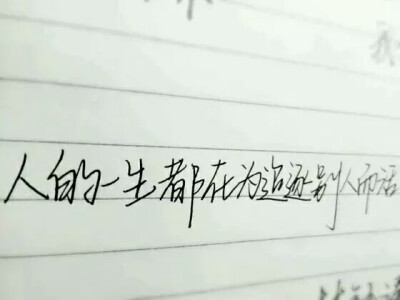 我
人的一生都在为追逐别人而活